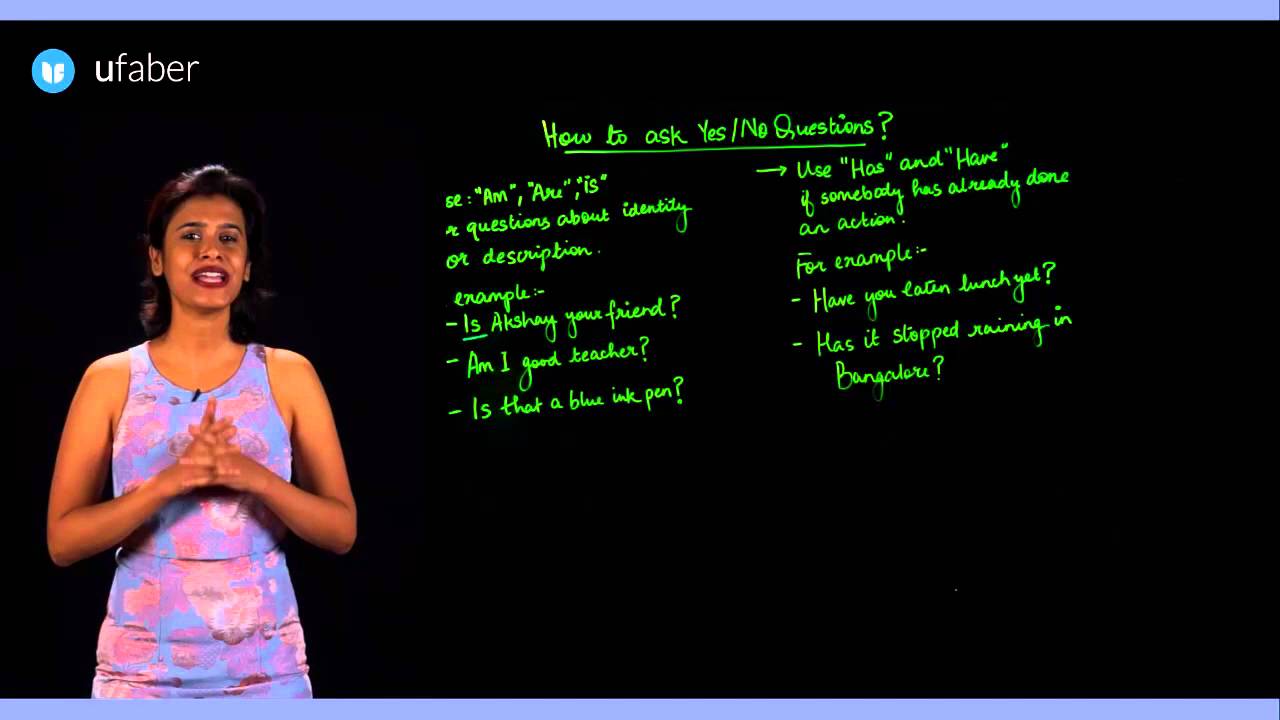 ufaber
How to ask Yes/No Questions?
se: "Am", "Are", "is"
r questions about identity
or description.
example:-
- Is Akshay your friend?
- Am I good teacher?
- Is that a blue ink pen?
→ Use "Has" and "Have"
if somebody has already done
an action.
For example:-
- Have you eaten lunch yet?
- Has it stopped raining in
Bangalore?